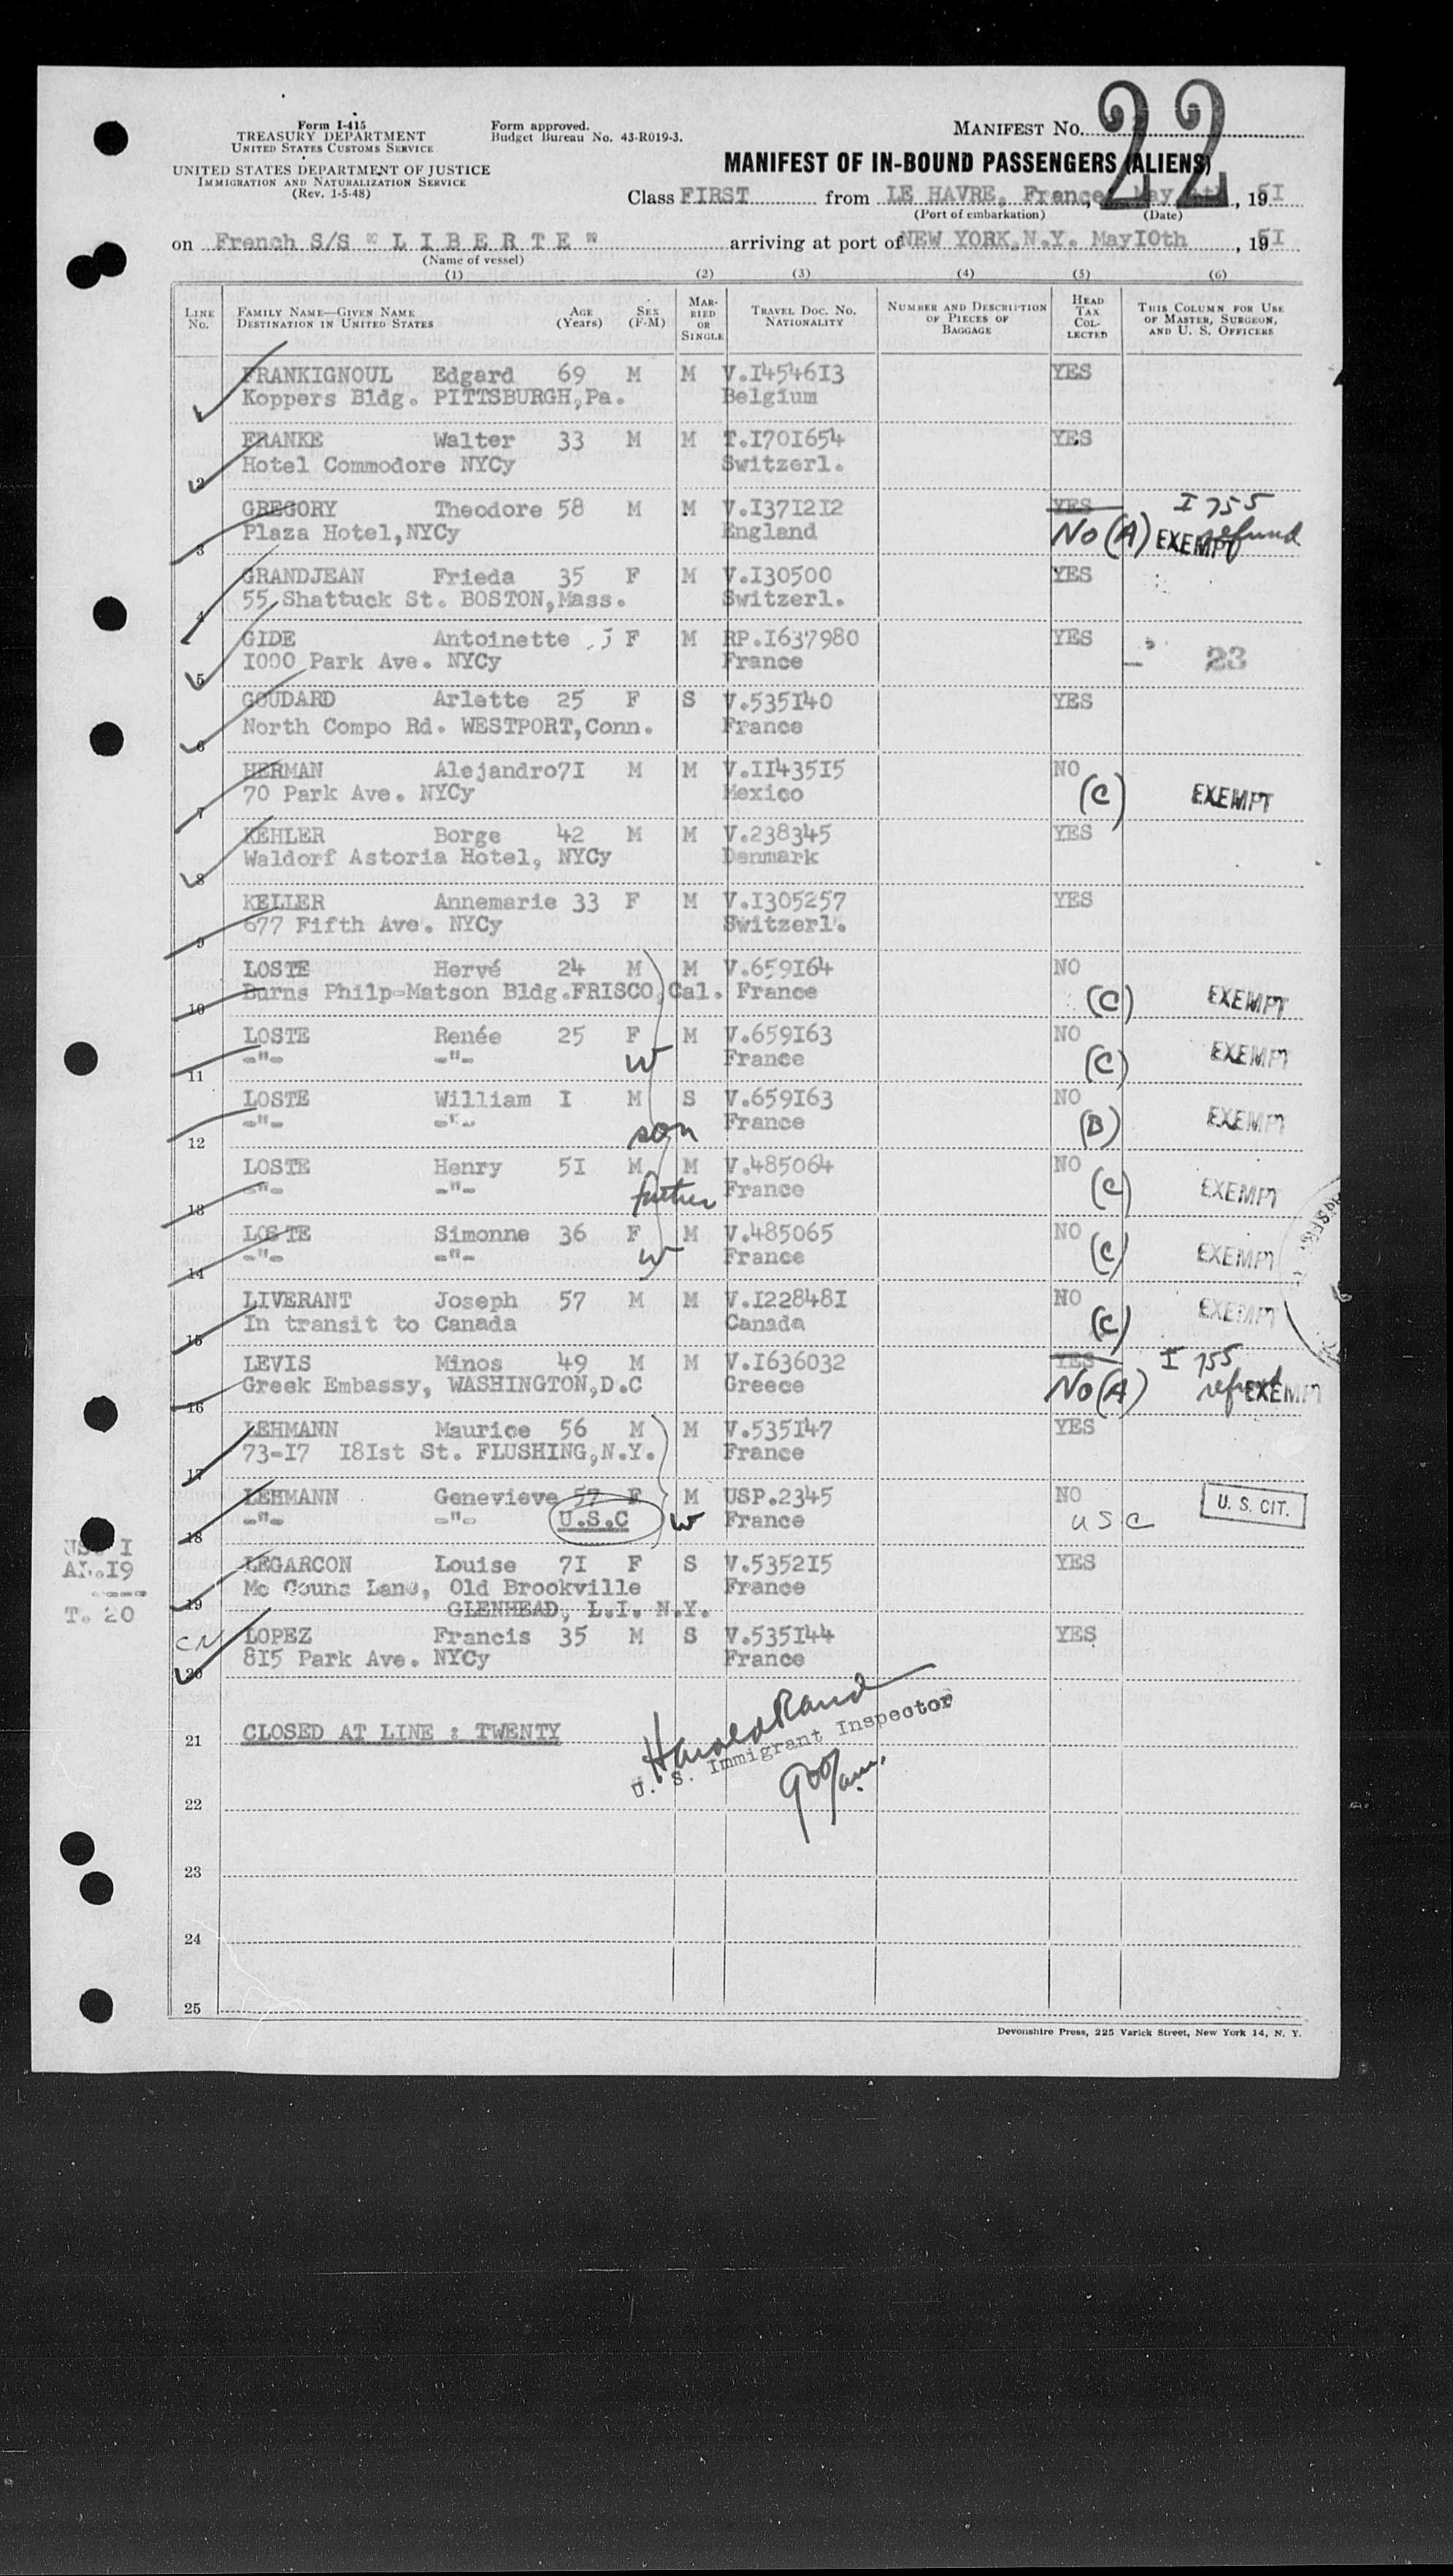 Form I-415
TREASURY DEPARTMENT
UNITED STATES CUSTOMS SERVICE
UNITED STATES DEPARTMENT OF JUSTICE
IMMIGRATION AND NATURALIZATION SERVICE
(Rev. 1-5-48)
Form approved.
Budget Bureau No. 43-R019-3.
MANIFEST No. 22
MANIFEST OF IN-BOUND PASSENGERS (ALIENS)
Class FIRST from LE HAVRE, France, May , 19 5I
(Port of embarkation) (Date)
on French S/S " L I B E R T E " arriving at port of NEW YORK,N.Y. MayI0th , 19 5I
(Name of vessel)
(1) (2) (3) (4) (5) (6)
LINE No. FAMILY NAME—GIVEN NAME DESTINATION IN UNITED STATES AGE (Years) SEX (F-M) MARRIED OR SINGLE TRAVEL DOC. NO. NATIONALITY NUMBER AND DESCRIPTION OF PIECES OF BAGGAGE HEAD TAX COLLECTED THIS COLUMN FOR USE OF MASTER, SURGEON, AND U. S. OFFICERS
1 FRANKIGNOUL Edgard 69 M M V.I4546I3 YES
Koppers Bldg. PITTSBURGH,Pa. Belgium
2 FRANKE Walter 33 M M T.I70I654 YES
Hotel Commodore NYCy Switzerl.
3 GREGORY Theodore 58 M M V.I37I2I2 YES I 755
Plaza Hotel,NYCy England No (A) EXEMPT refund
4 GRANDJEAN Frieda 35 F M V.I30500 YES
55 Shattuck St. BOSTON,Mass. Switzerl.
5 GIDE Antoinette F M RP.I637980 YES
I000 Park Ave. NYCy France 23
6 GOUDARD Arlette 25 F S V.535I40 YES
North Compo Rd. WESTPORT,Conn. France
7 HERMAN Alejandro7I M M V.II435I5 NO
70 Park Ave. NYCy Mexico (C) EXEMPT
8 KEHLER Borge 42 M M V.238345 YES
Waldorf Astoria Hotel, NYCy Denmark
9 KELLER Annemarie 33 F M V.I305257 YES
677 Fifth Ave. NYCy Switzerl.
10 LOSTE Hervé 24 M M V.659I64 NO
Burns Philp-Matson Bldg.FRISCO,Cal. France (C) EXEMPT
11 LOSTE Renée 25 F M V.659I63 NO
-"- -"- W France (C) EXEMPT
12 LOSTE William I M S V.659I63 NO
-"- -"- son France (B) EXEMPT
13 LOSTE Henry 5I M M V.485064 NO
-"- -"- father France (C) EXEMPT
14 LOSTE Simonne 36 F M V.485065 NO
-"- -"- W France (C) EXEMPT
15 LIVERANT Joseph 57 M M V.I22848I NO
In transit to Canada Canada (C) EXEMPT
16 LEVIS Minos 49 M M V.I636032 YES I 755
Greek Embassy, WASHINGTON,D.C Greece No (A) refund EXEMPT
17 LEHMANN Maurice 56 M M V.535I47 YES
73-I7 I8Ist St. FLUSHING,N.Y. France
18 LEHMANN Genevieve 57 F M USP.2345 NO U. S. CIT.
-"- -"- U.S.C W France USC
19 LEGARCON Louise 7I F S V.5352I5 YES
Mc Couns Lane, Old Brookville France
GLENHEAD, L.I. N.Y.
I
AL.I9
T. 20
CN
20 LOPEZ Francis 35 M S V.535I44 YES
8I5 Park Ave. NYCy France
21 CLOSED AT LINE : TWENTY
Harold Rand
U. S. Immigrant Inspector
900/am.
22
23
24
25
Devonshire Press, 225 Varick Street, New York 14, N. Y.